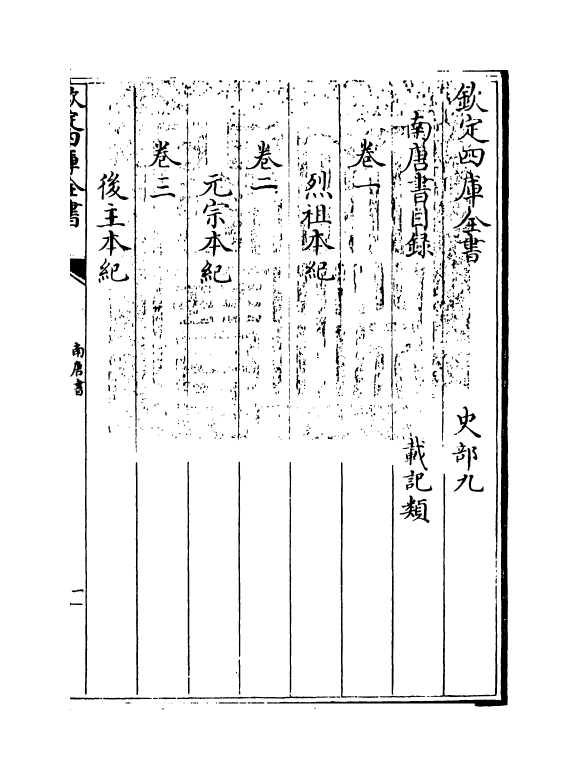 欽定四庫全書 史部九
南唐書目録 載記類
卷一
烈祖本紀
卷二
元宗本紀
卷三
後主本紀
欽定四庫全書 南唐書 一